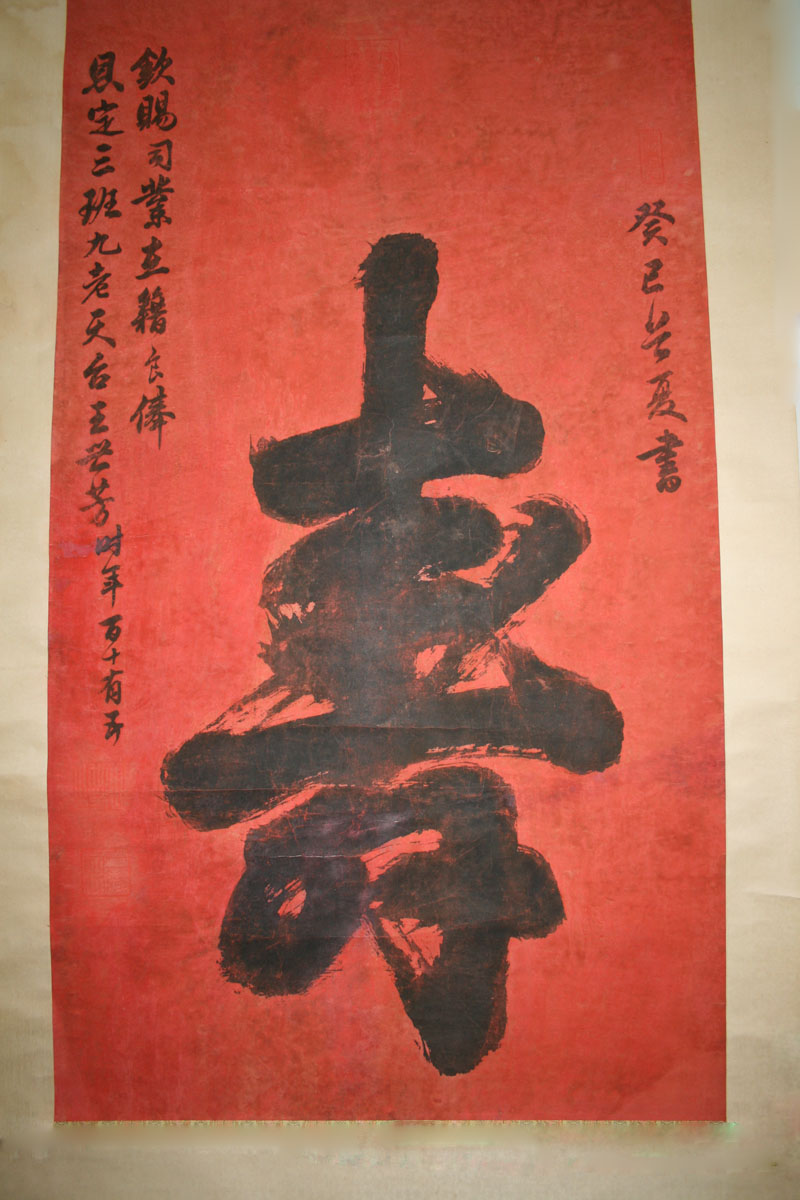 癸巳夏書
壽
欽賜司業在籍食俸
恩定三班九老天台王世芳時年百十有五